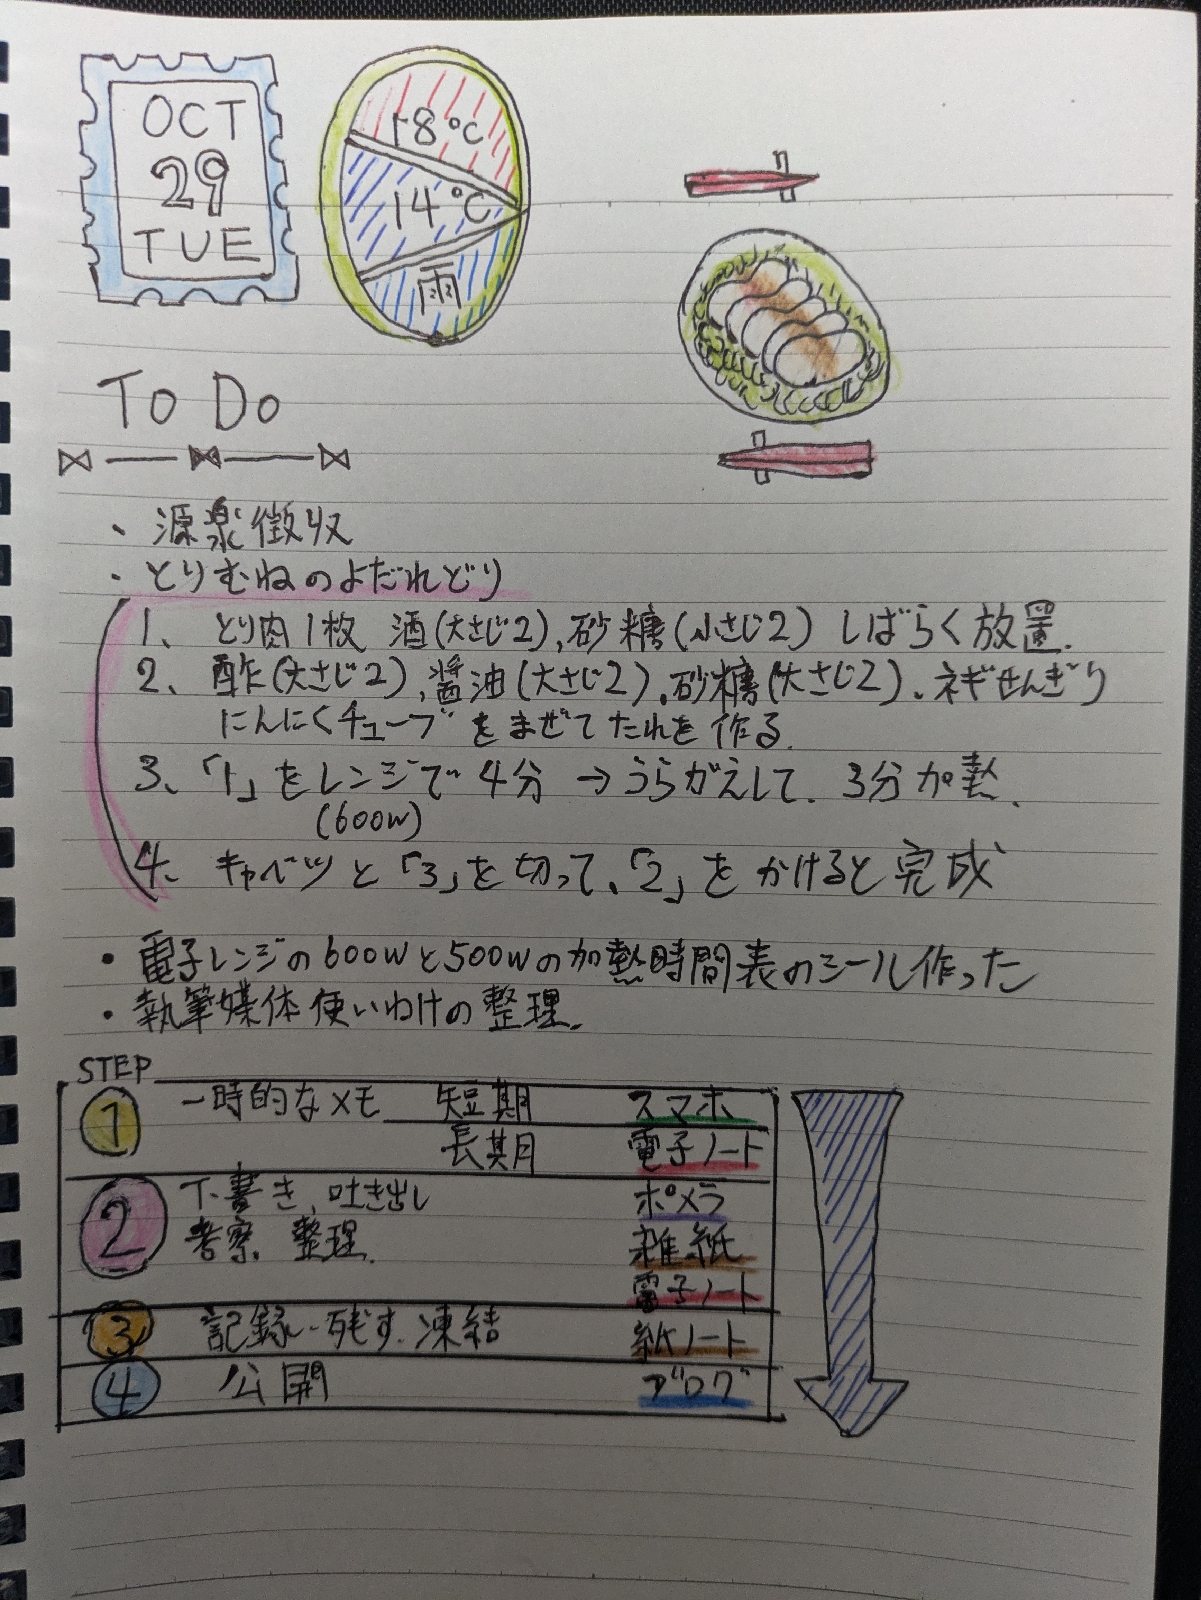 OCT
29
TUE
18℃
14℃
雨
To Do
・源泉徴収
・とりむねのよだれどり
1、とり肉1枚 酒(大さじ2)、砂糖(小さじ2) しばらく放置.
2、酢(大さじ2)、醤油(大さじ2)、砂糖(大さじ2)、ネギせんぎり
にんにくチューブをまぜてたれを作る.
3、「1」をレンジで4分→うらがえして、3分加熱.
(600w)
4. キャベツと「3」を切って、「2」をかけると完成
・電子レンジの600wと500wの加熱時間表のシール作った
・執筆媒体使いわけの整理.
STEP
1 一時的なメモ 短期 スマホ
長期 電子ノート
2 下書き、吐き出し ポメラ
考察、整理. 雑紙
電子ノート
3 記録・残す.凍結 紙ノート
4 公開 ブログ